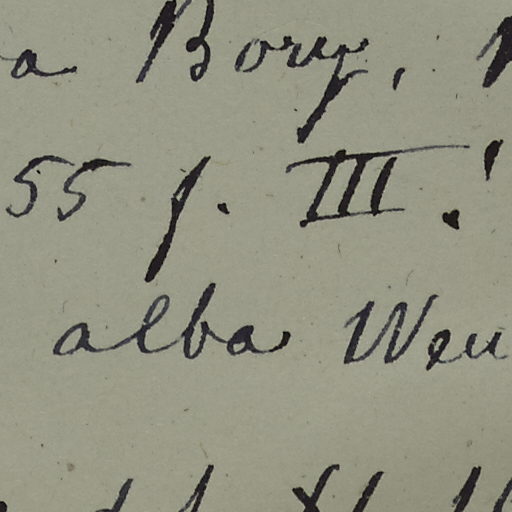 a Bory,
55 f. III.!
alba Wen